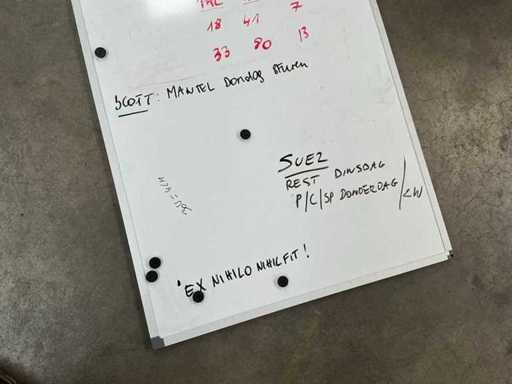 18 41 7
33 80 13
SCOTT: MANTEL DONDAG STUREN
SUEZ
REST DINSDAG
P/C/SP DONDERDAG /KW
'EX NIHILO NIHIL FIT!